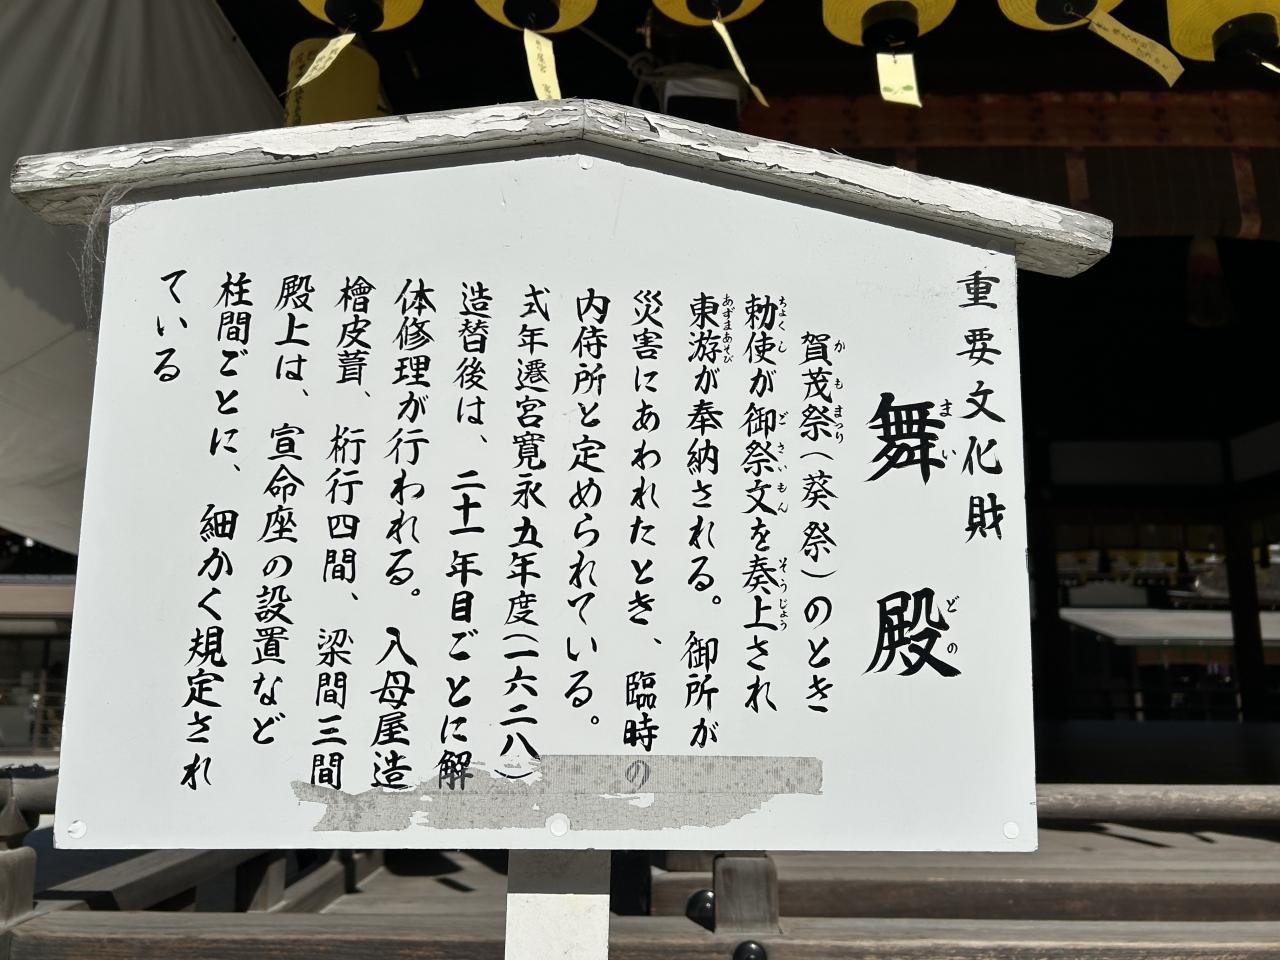 重要文化財
舞殿
まいどの
賀茂祭(葵祭)のとき
かもまつり
勅使が御祭文を奏上され
ちょくし ごさいもん そうじょう
東游が奉納される。御所が
あずまあそび
災害にあわれたとき、臨時の
内侍所と定められている。
式年遷宮寛永五年度(一六二八)
造替後は、二十一年目ごとに解
体修理が行われる。入母屋造
檜皮葺、桁行四間、梁間三間
殿上は、宣命座の設置など
柱間ごとに、細かく規定され
ている